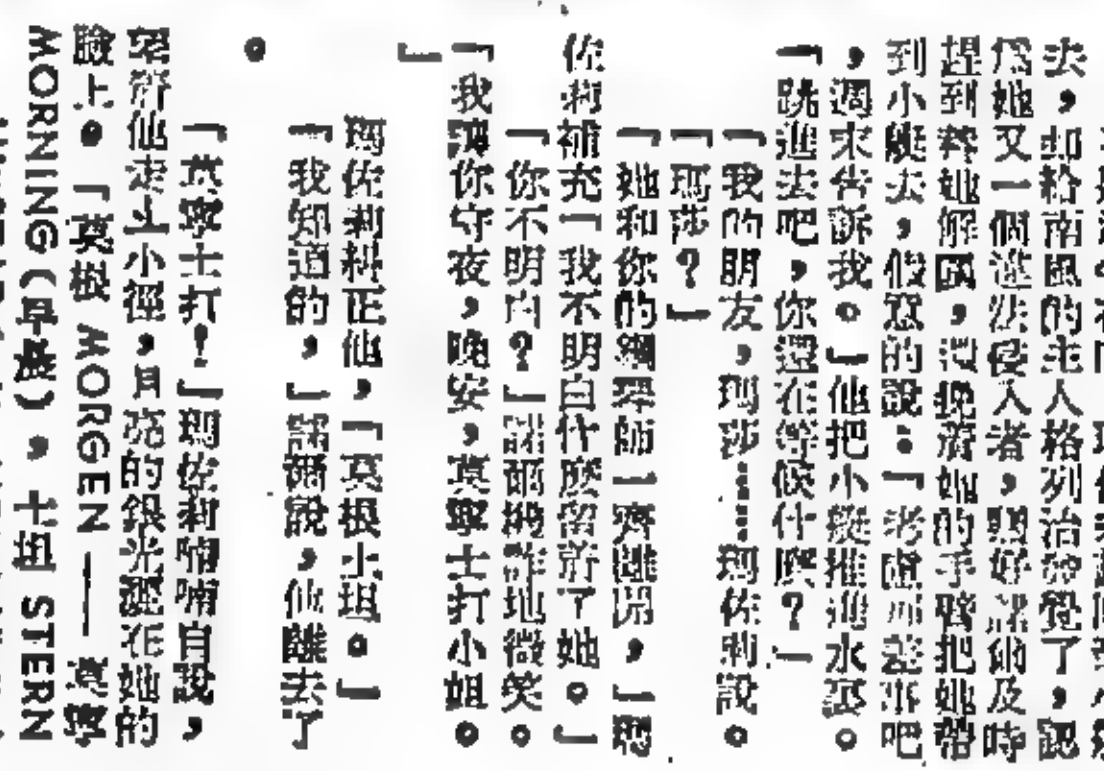 去，却給南風的主人格列治發覺了，認
爲她又一個進法侵入者，題好諾爾及時
趕到替她解圍，還挽着她的手臂把她帶
到小艇去，假意的說：「考慮那差事吧
，週末告訴我。」他把小艇推進水裏。
「跳進去吧，你還在等候什麼？」
「我的朋友，瑪莎……瑪佐莉說。
「瑪莎？」
「她和你的鋼琴師一齊離開，」瑪
佐莉補充「我不明白什麼留着了她。」
「你不明白？」諾爾狡詐地微笑。
「我讓你守夜，晚安，莫寧士打小姐。
」
瑪佐莉糾正他，「莫根士坦。」
「我知道的，」諾爾說，他離去了
。
「莫寧士打！」瑪佐莉喃喃自說，
望着他走上小徑，月亮的銀光灑在她的
臉上。「莫根 MORGEN —— 莫寧
MORNING（早晨），士坦 STERN